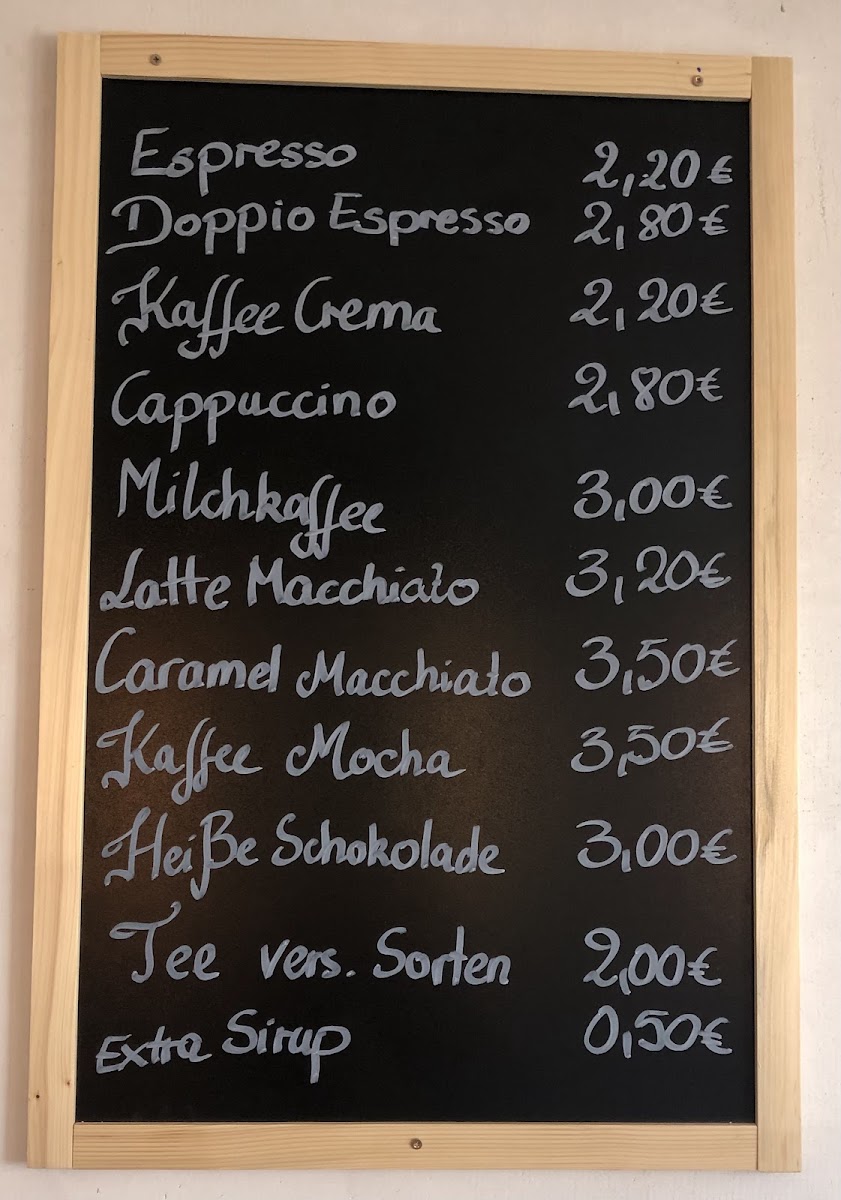 Espresso 2,20€
Doppio Espresso 2,80€
Kaffee Crema 2,20€
Cappuccino 2,80€
Milchkaffee 3,00€
Latte Macchiato 3,20€
Caramel Macchiato 3,50€
Kaffee Mocha 3,50€
Heiße Schokolade 3,00€
Tee vers. Sorten 2,00€
Extra Sirup 0,50€